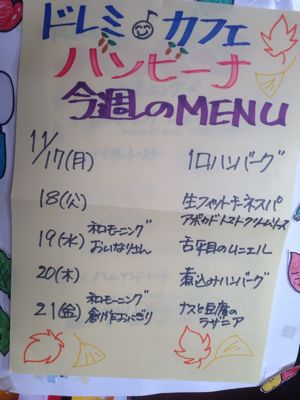 ドレミ カフェ
バンビーナ
今週のMENU
11/17(月) 1口ハンバーグ
18(火) 生フィットチーネスパ
アボカドトマトクリームソース
19(水) 和モーニング
おいなりさん 舌平目のムニエル
20(木) 煮込みハンバーグ
21(金) 和モーニング
創作おにぎり ナスと豆腐の
ラザニア